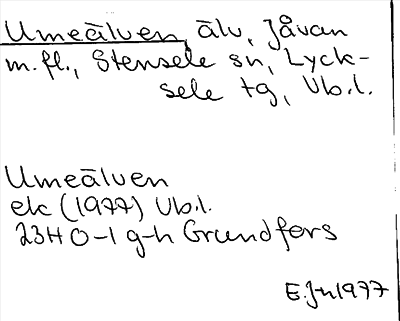 Umeälven, älv, Jåvan
m.fl., Stensele sn, Lyck-
sele tg, Vb.l.
Umeälven
ek (1977) Vb.l.
23H 0-1 g-h Grundfors
E.Jn 1977